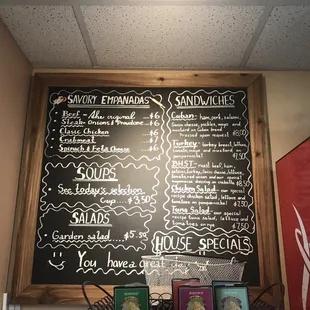 SAVORY EMPANADAS
Beef - The original .... $6
Steak - Onions & Provolone ... $6
Classic Chicken ... $6
$6
Spinach & Feta Cheese ... $6
SOUPS
See today's selection
Cup ..... $3.50
SALADS
Garden salad ..... $5.50
You have a great day
SANDWICHES
Cuban - ham, pork, salami,
Swiss cheese, pickles, mayo and
mustard on Cuban bread
Pressed upon request $8.00
Turkey - turkey breast, lettuce,
tomato, mayo and mustard on
$7.50
BHST
tomato, red onion and our special
$8.50
Chicken Salad - our special
recipe chicken salad, lettuce and
tomato $7.50
Tuna Salad - our special
recipe tuna salad, lettuce and
tomato $7.50
HOUSE SPECIALS